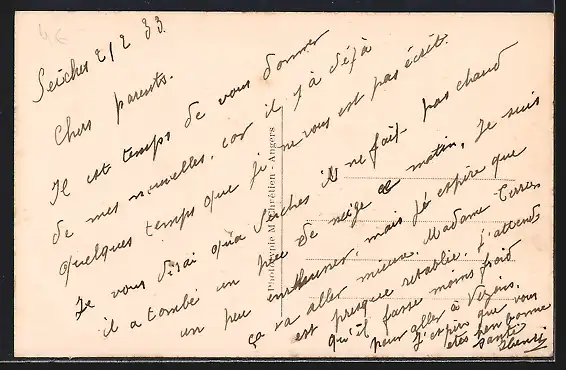 4€
Seiches 2/2 33.
Chers parents.
Il est temps de vous donner
de mes nouvelles, car il y à déjà
quelques temps que je ne vous est pas écrit.
Je vous dirai qu'à Seiches il ne fait pas chaud
il a tombé un peu de neige ce matin. Je suis
un peu enrhumer, mais j'éspire que
ça va aller mieux. Madame
est presque rétablie. J'attends
qu'il fasse moins froid
pour aller à Vezins.
J'espire que vous
etes en bonne
santé
Henri
Photographie M. Chrétien - Angers